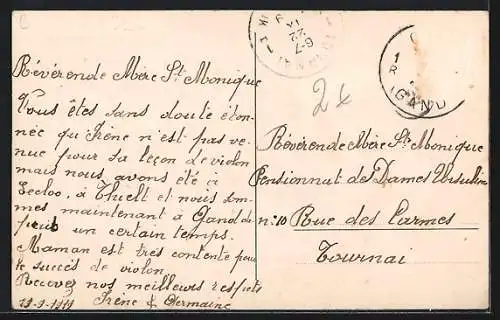 Révérende Mère Ste Monique
Vous êtes sans doute éton-
née qu'Irène n'est pas ve-
nue pour sa leçon de violon
mais nous avons été à
Eecloo, à Thielt et nous som-
mes maintenant à Gand de-
puis un certain temps.
Maman est très contente pour
le succès de violon.
Recevez nos meilleurs respects
Irène & Germaine
Révérende Mère Ste Monique
Pensionnat des Dames Ursulin
n: 10 Rue des Carmes
Tournai
GAND